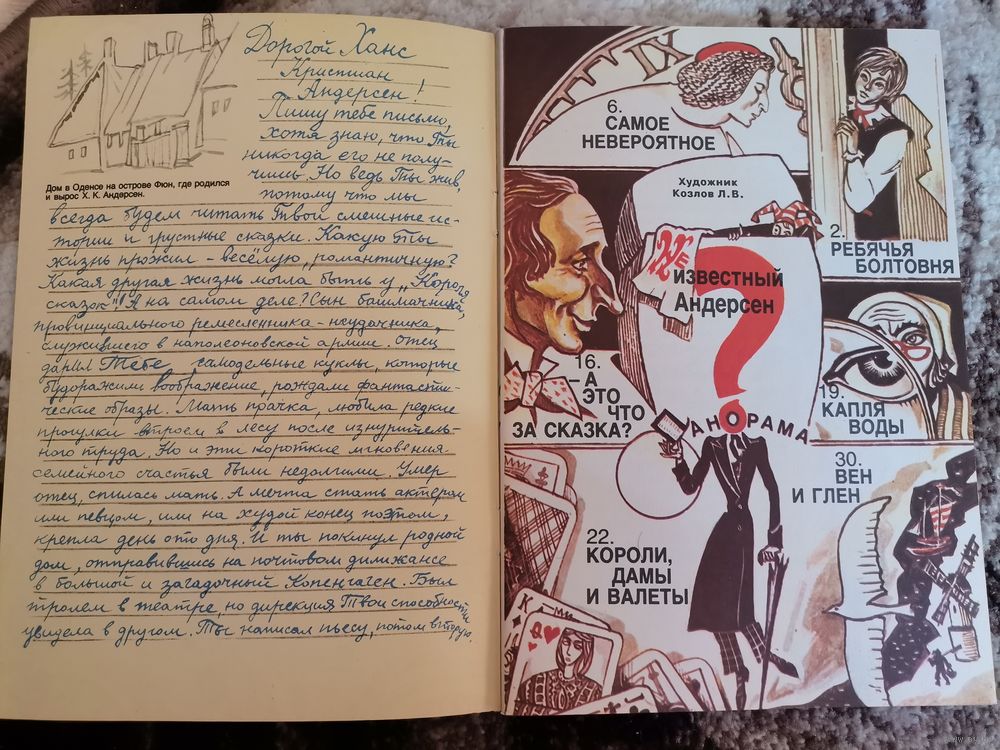 Дорогой Ханс
Кристиан
Андерсен!
Пишу тебе письмо,
хотя знаю, что Ты
никогда его не полу-
чишь. Но ведь Ты жив,
потому что мы
Дом в Оденсе на острове Фюн, где родился
и вырос Х. К. Андерсен.
всегда будем читать Твои смешные ис-
тории и грустные сказки. Какую Ты
жизнь прожил - весёлую, романтичную?
Какая другая жизнь могла быть у „Короля
сказок"! А на самом деле? Сын башмачника,
провинциального ремесленника - неудачника,
служившего в наполеоновской армии. Отец
дарил Тебе самодельные куклы, которые
будоражили воображение, рождали фантасти-
ческие образы. Мать прачка, любила редкие
прогулки втроем в лесу после изнуритель-
ного труда. Но и эти короткие мгновения
семейного счастья были недолгими. Умер
отец, спилась мать. А мечта стать актером
или певцом, или на худой конец поэтом,
крепла день ото дня. И ты покинул родной
дом, отправившись на почтовом дилижансе
в большой и загадочный Копенгаген. Был
тролем в театре, но дирекция Твои способности
увидела в другом. Ты написал пьесу, потом вторую.
IX
6.
САМОЕ
НЕВЕРОЯТНОЕ
Художник
Козлов Л.В.
2.
РЕБЯЧЬЯ
БОЛТОВНЯ
Не
известный
Андерсен
?
16.
- А
ЭТО
ЧТО
ЗА СКАЗКА?
19.
КАПЛЯ
ВОДЫ
ПАНОРАМА
30.
ВЕН
И ГЛЕН
22.
КОРОЛИ,
ДАМЫ
И ВАЛЕТЫ
K
Q